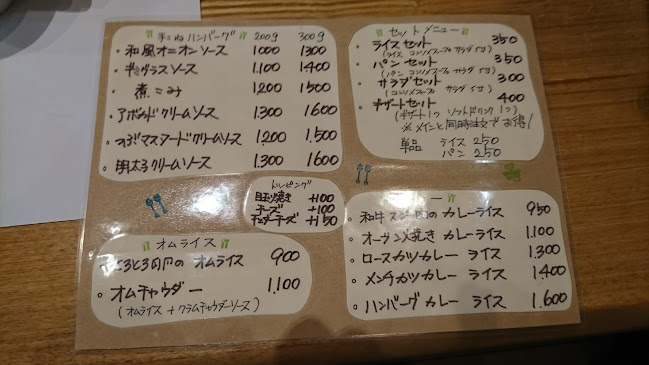 手こねハンバーグ 200g 300g
・和風オニオンソース 1000 1300
・デミグラスソース 1.100 1400
・煮こみ 1200 1500
・アボカドクリームソース 1.300 1600
マスタードクリームソース 1.200 1.500
・明太子クリームソース 1.300 1600
トッピング
目玉焼き +100
チーズ +100
チェダーチーズ +150
オムライス
とろとろ オムライス 900
・オムチャウダー 1.100
(オムライス + クラムチャウダーソース)
セットメニュー
・ライスセット 350
(ライス コンソメスープ サラダ 付)
・パンセット 350
(パン コンソメスープ サラダ 付)
・サラダセット 300
(コンソメスープ サラダ 付)
・デザートセット 400
(デザート1つ ソフトドリンク 1つ)
※メインと同時注文でお得!
単品 ライス 250
パン 250
・和牛スジ肉のカレーライス 950
・オーブン焼き カレーライス 1.100
・ロースカツカレー ライス 1.300
・メンチカツカレー ライス 1.400
・ハンバーグカレー ライス 1.600